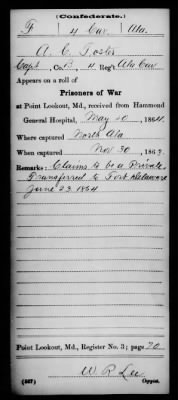 (Confederate.)
F 4 Cav. Ala.
A. C. Foster
Capt, Co. B, 4 Reg't Ala Cav
Appears on a roll of
Prisoners of War
at Point Lookout, Md., received from Hammond
General Hospital, May 10, 1864.
Where captured North Ala
When captured Nov 30, 1863.
Remarks: Claims to be a Private.
Transferred to Fort Delaware
June 23 1864
Point Lookout, Md., Register No. 3; page 20
W R Lee
(657) Copyist.